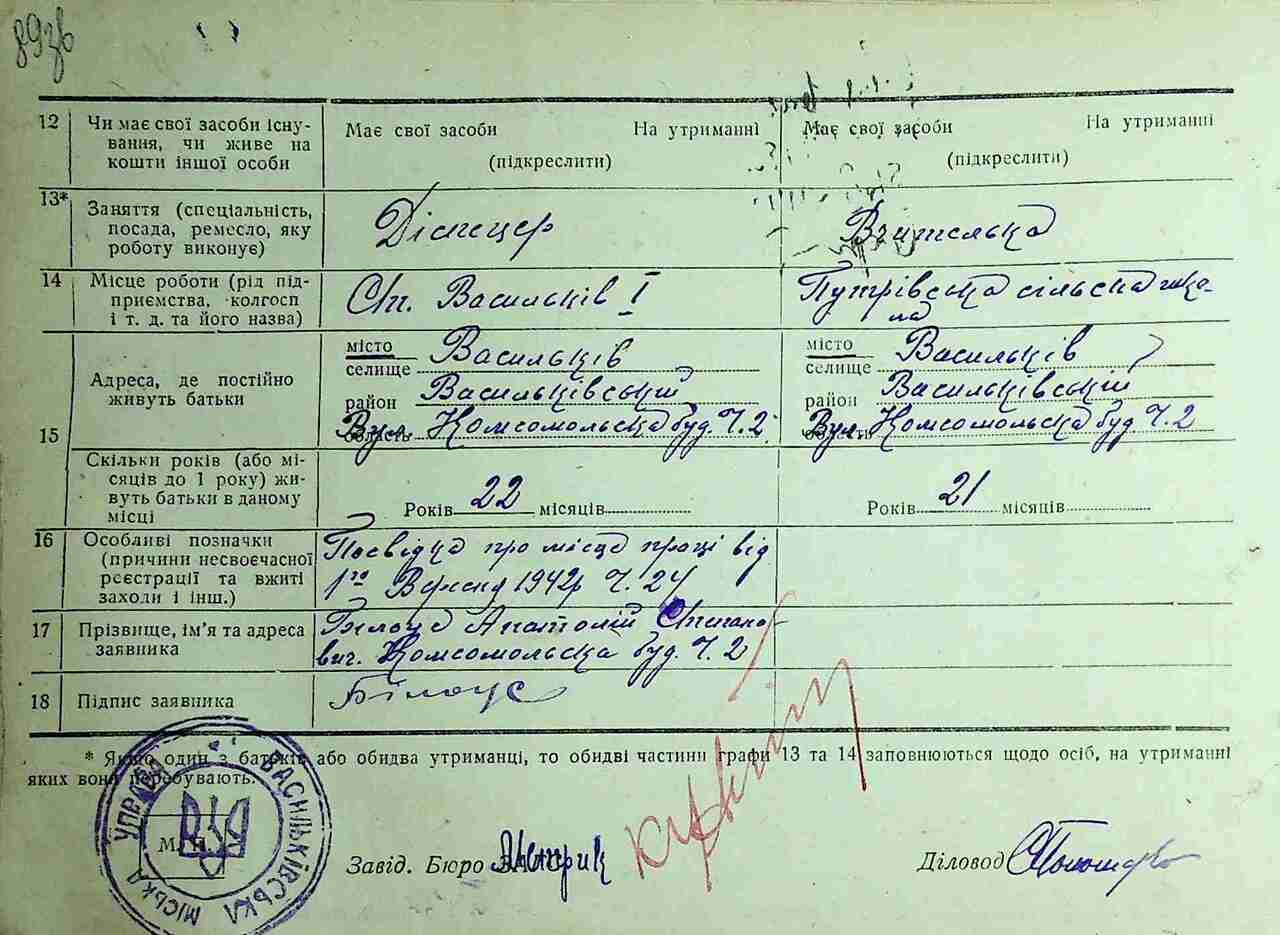 12 Чи має свої засоби існування, чи живе на кошти іншої особи
Має свої засоби На утриманні
(підкреслити)
Має свої засоби На утриманні
(підкреслити)
13* Заняття (спеціальність, посада, ремесло, яку роботу виконує)
Діспецер
Вчителька
14 Місце роботи (рід підприємства, колгосп і т. д. та його назва)
Ст. Васильків I
Путрівська сільська школа
15 Адреса, де постійно живуть батьки
місто Васильків
селище
район Васильківський
область Вул. Комсомольска буд. Ч. 2
місто Васильків
селище
район Васильківський
область Вул. Комсомольска буд Ч. 2
Скільки років (або місяців до 1 року) живуть батьки в даному місці
Років 22 місяців
Років 21 місяців
16 Особливі позначки (причини несвоєчасної реєстрації та вжиті заходи і інш.)
Посвідка про місце праці від
1го Вересня 1942р Ч. 24
17 Прізвище, ім'я та адреса заявника
Білоус Анатолій Степано-
вич. Комсомольска буд. Ч. 2
18 Підпис заявника
Білоус
* Якщо один з батьків або обидва утриманці, то обидві частини графи 13 та 14 заповнюються щодо осіб, на утриманні
яких вони перебувають.
ВАСИЛЬКІВСЬКА МІСЬКА УПРАВА
М. П.
Завід. Бюро
Діловод